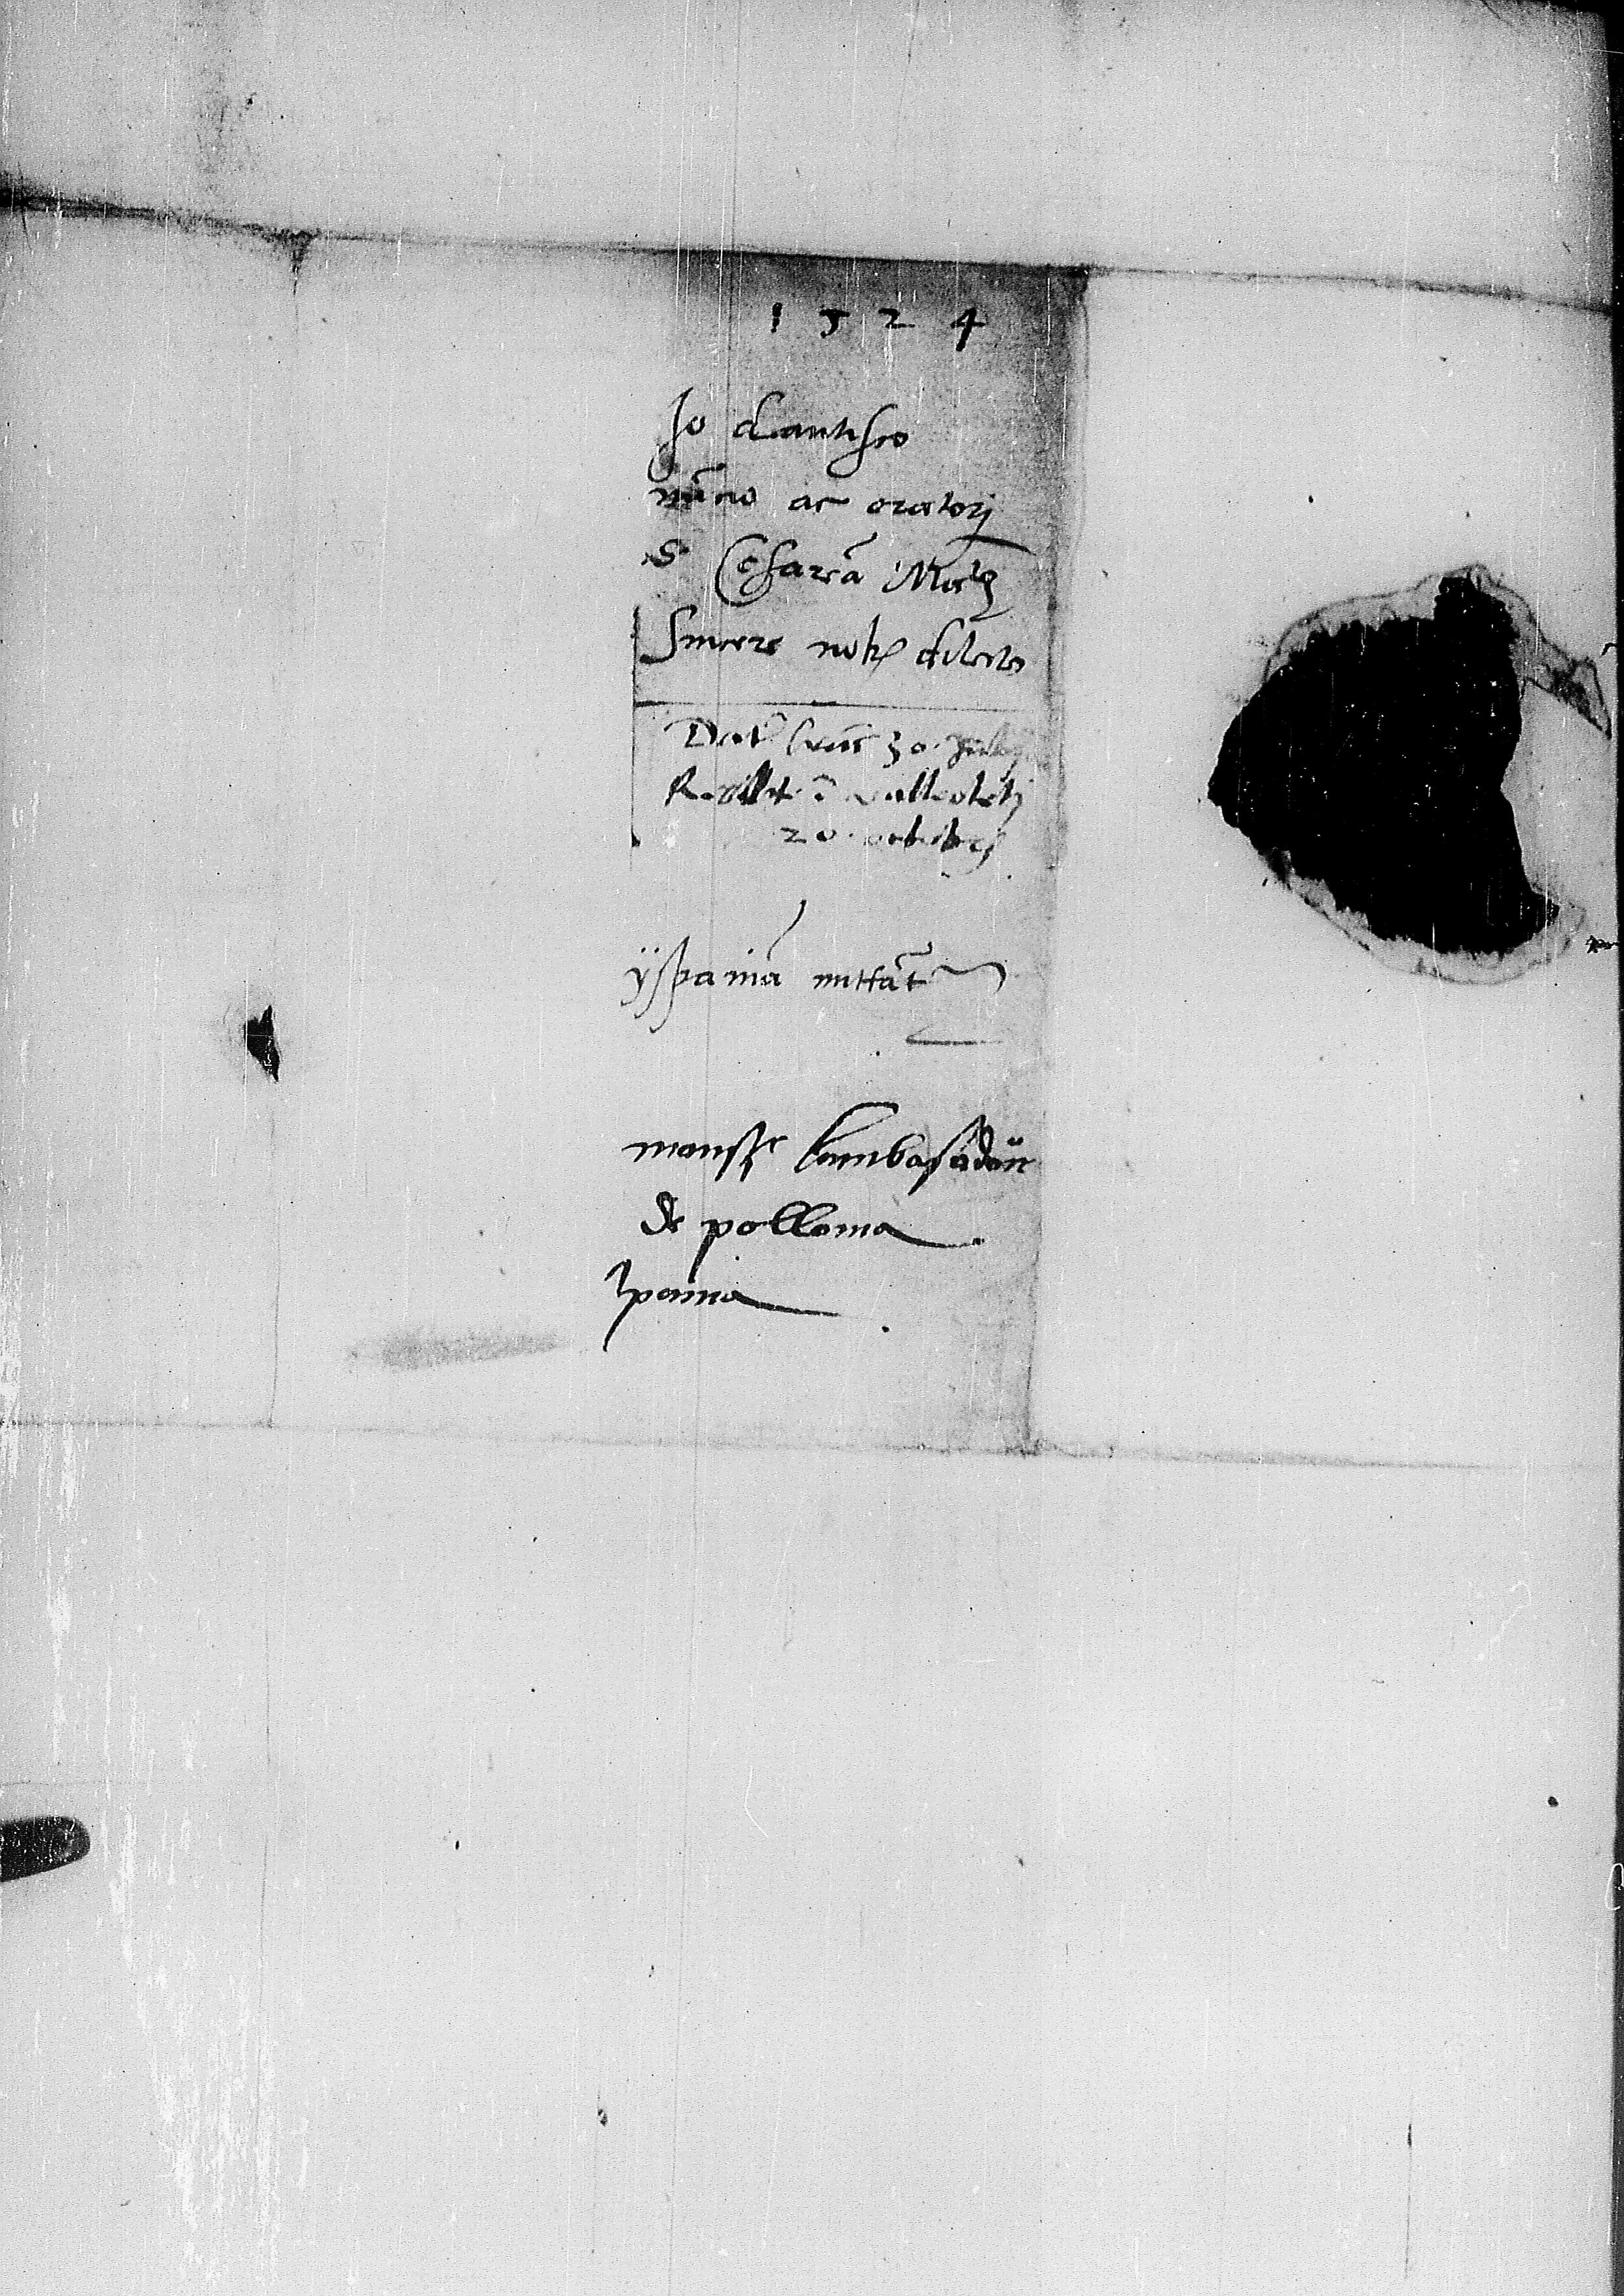 1524
Jo dantisco
nūcio ac oratorj
S Cesareā Maᵗᵉ
Sincere nobis dilecto
Dat 30 Julij
ī valleoletj
20 octobris
yspaniā mittāt
monsʳ lambasadour
de pollonia
Spania